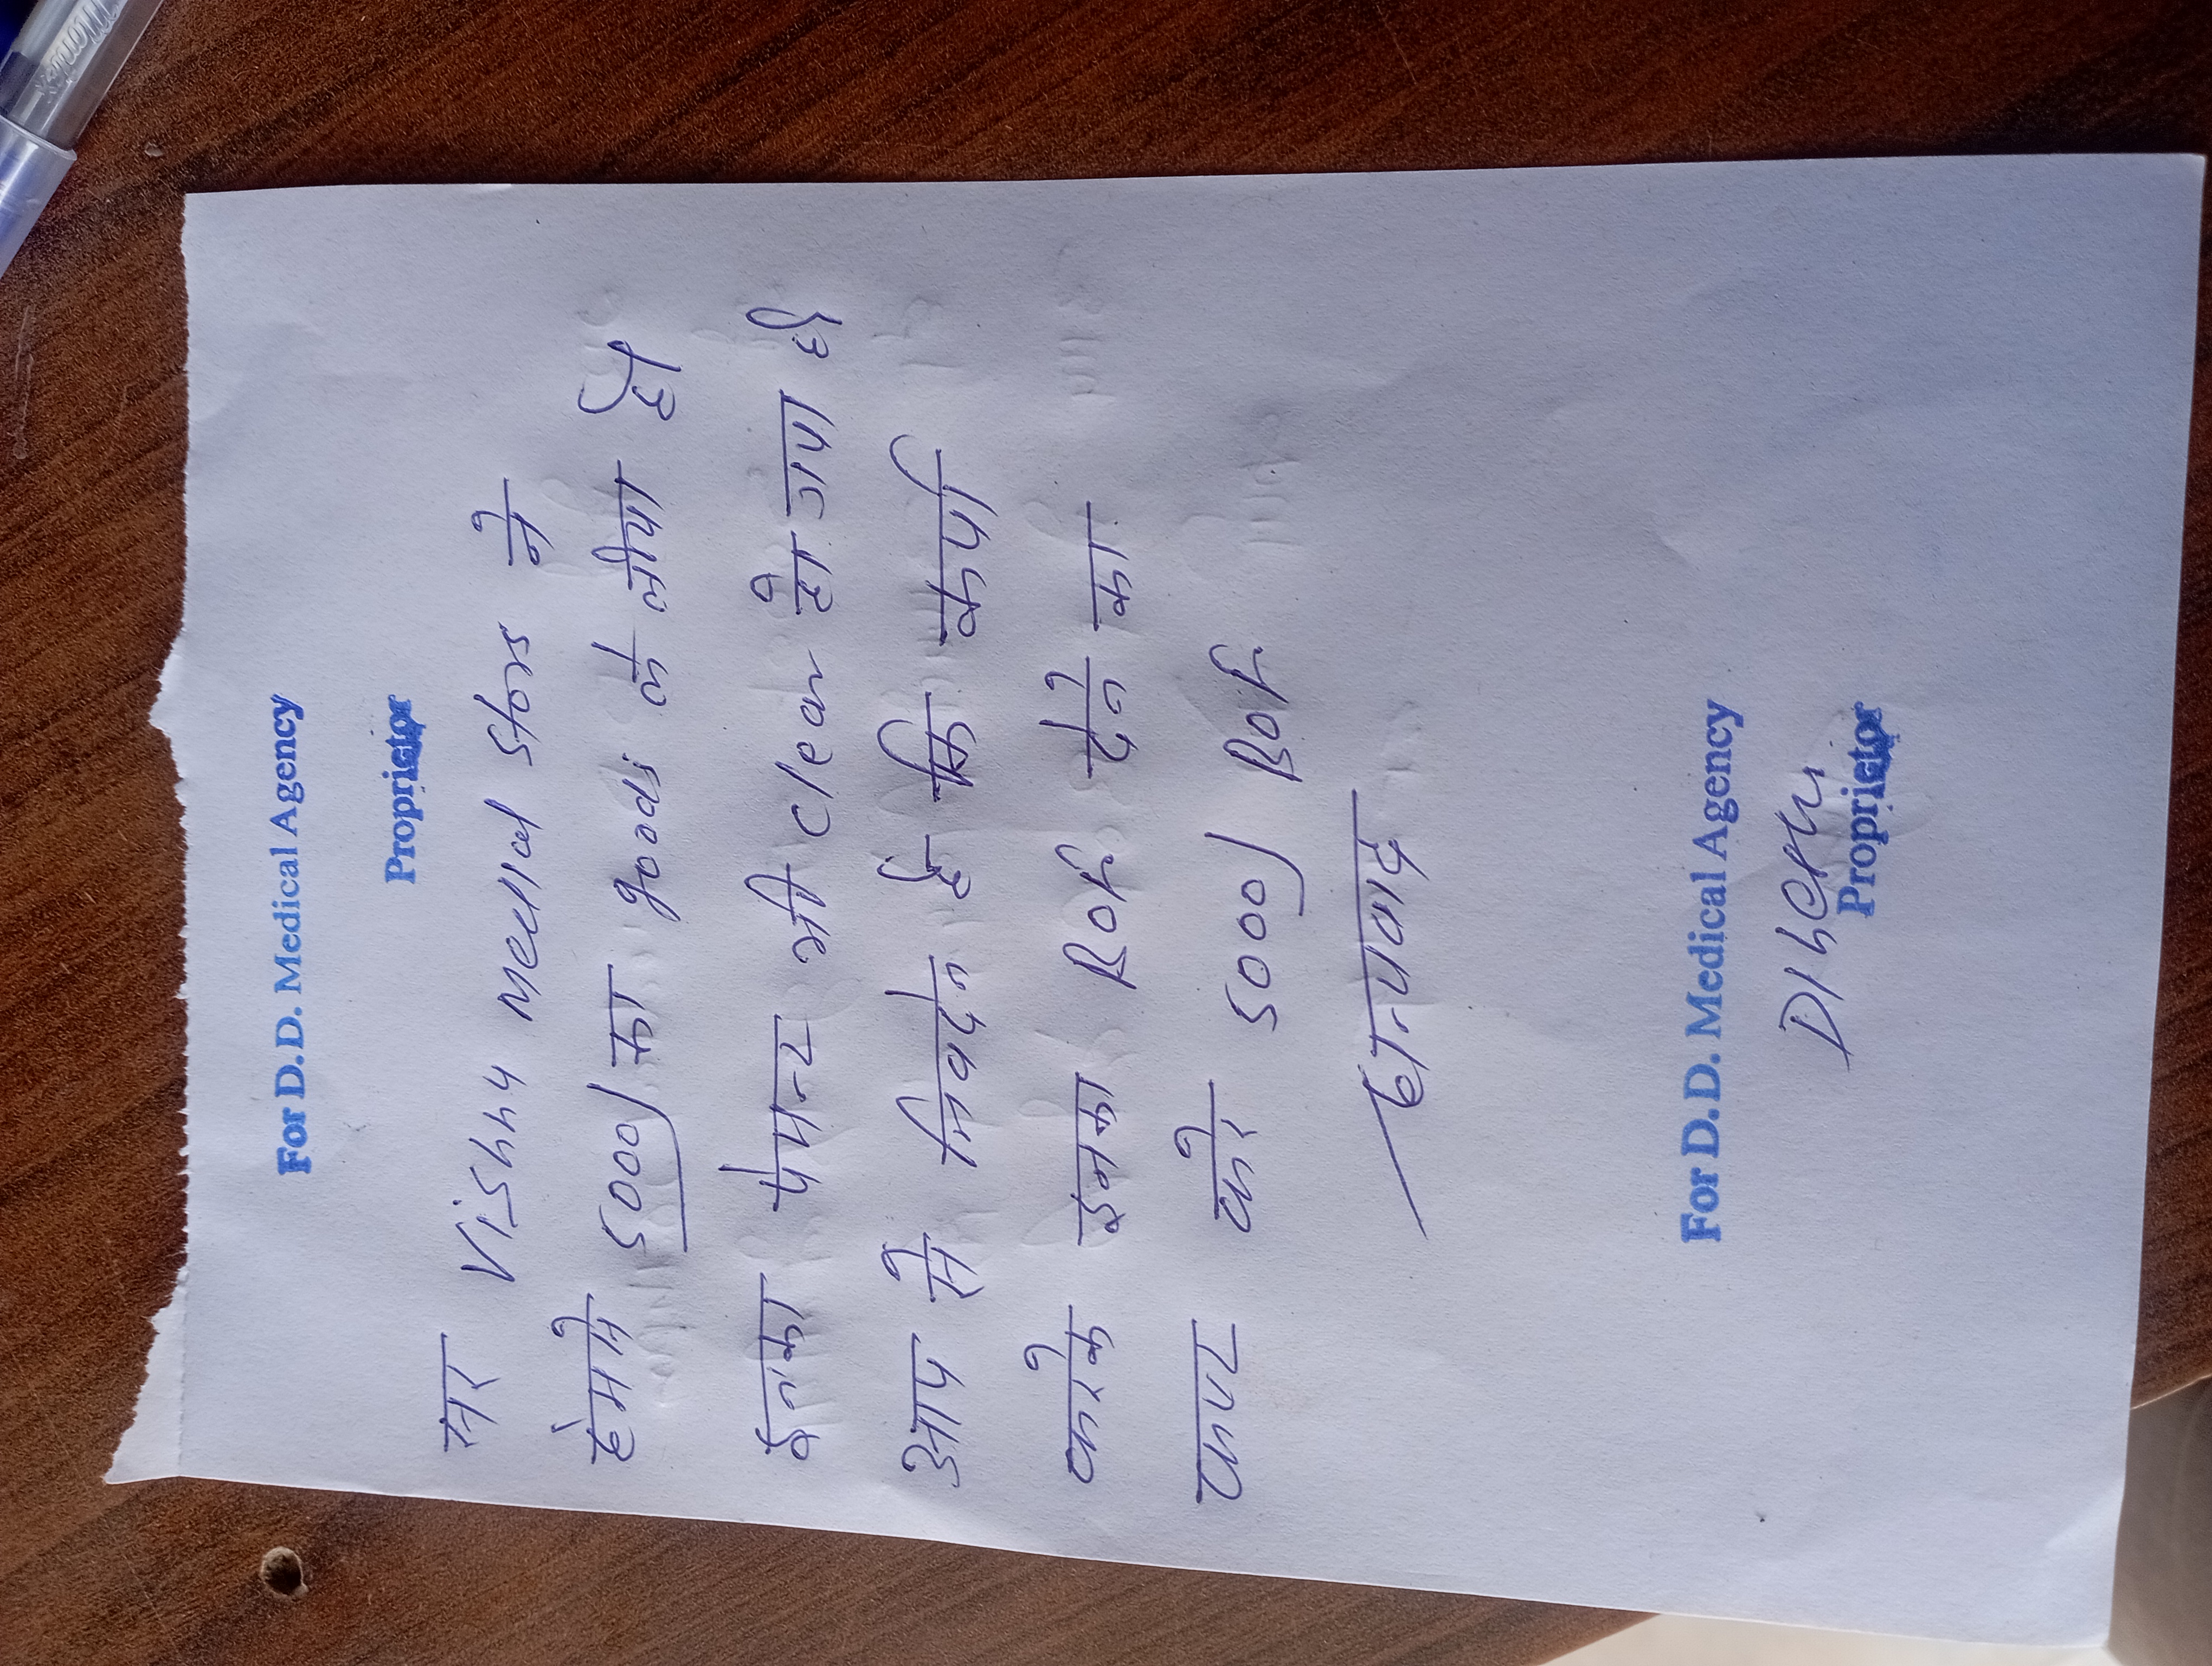 For D.D. Medical Agency
Proprietor
सर Vishnu Medical Store ने
हमसे 5000/ का goods ले लीया है
ईनका पेमन्ट भी clear हो गया है
आप से निवेदन है कि कर्पा
करके इनका देने का
कष्ट करे 5000/
धन्यवाद
For D.D. Medical Agency
Proprietor